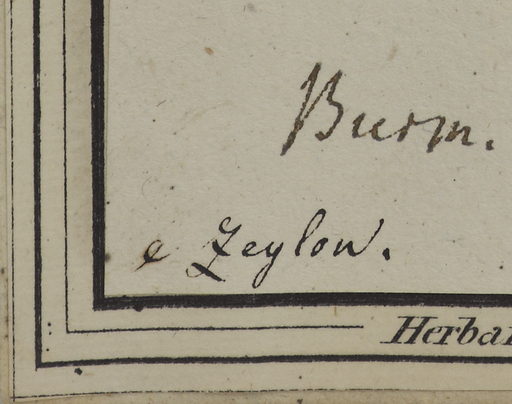 Burm.
e Zeylon.
Herbar